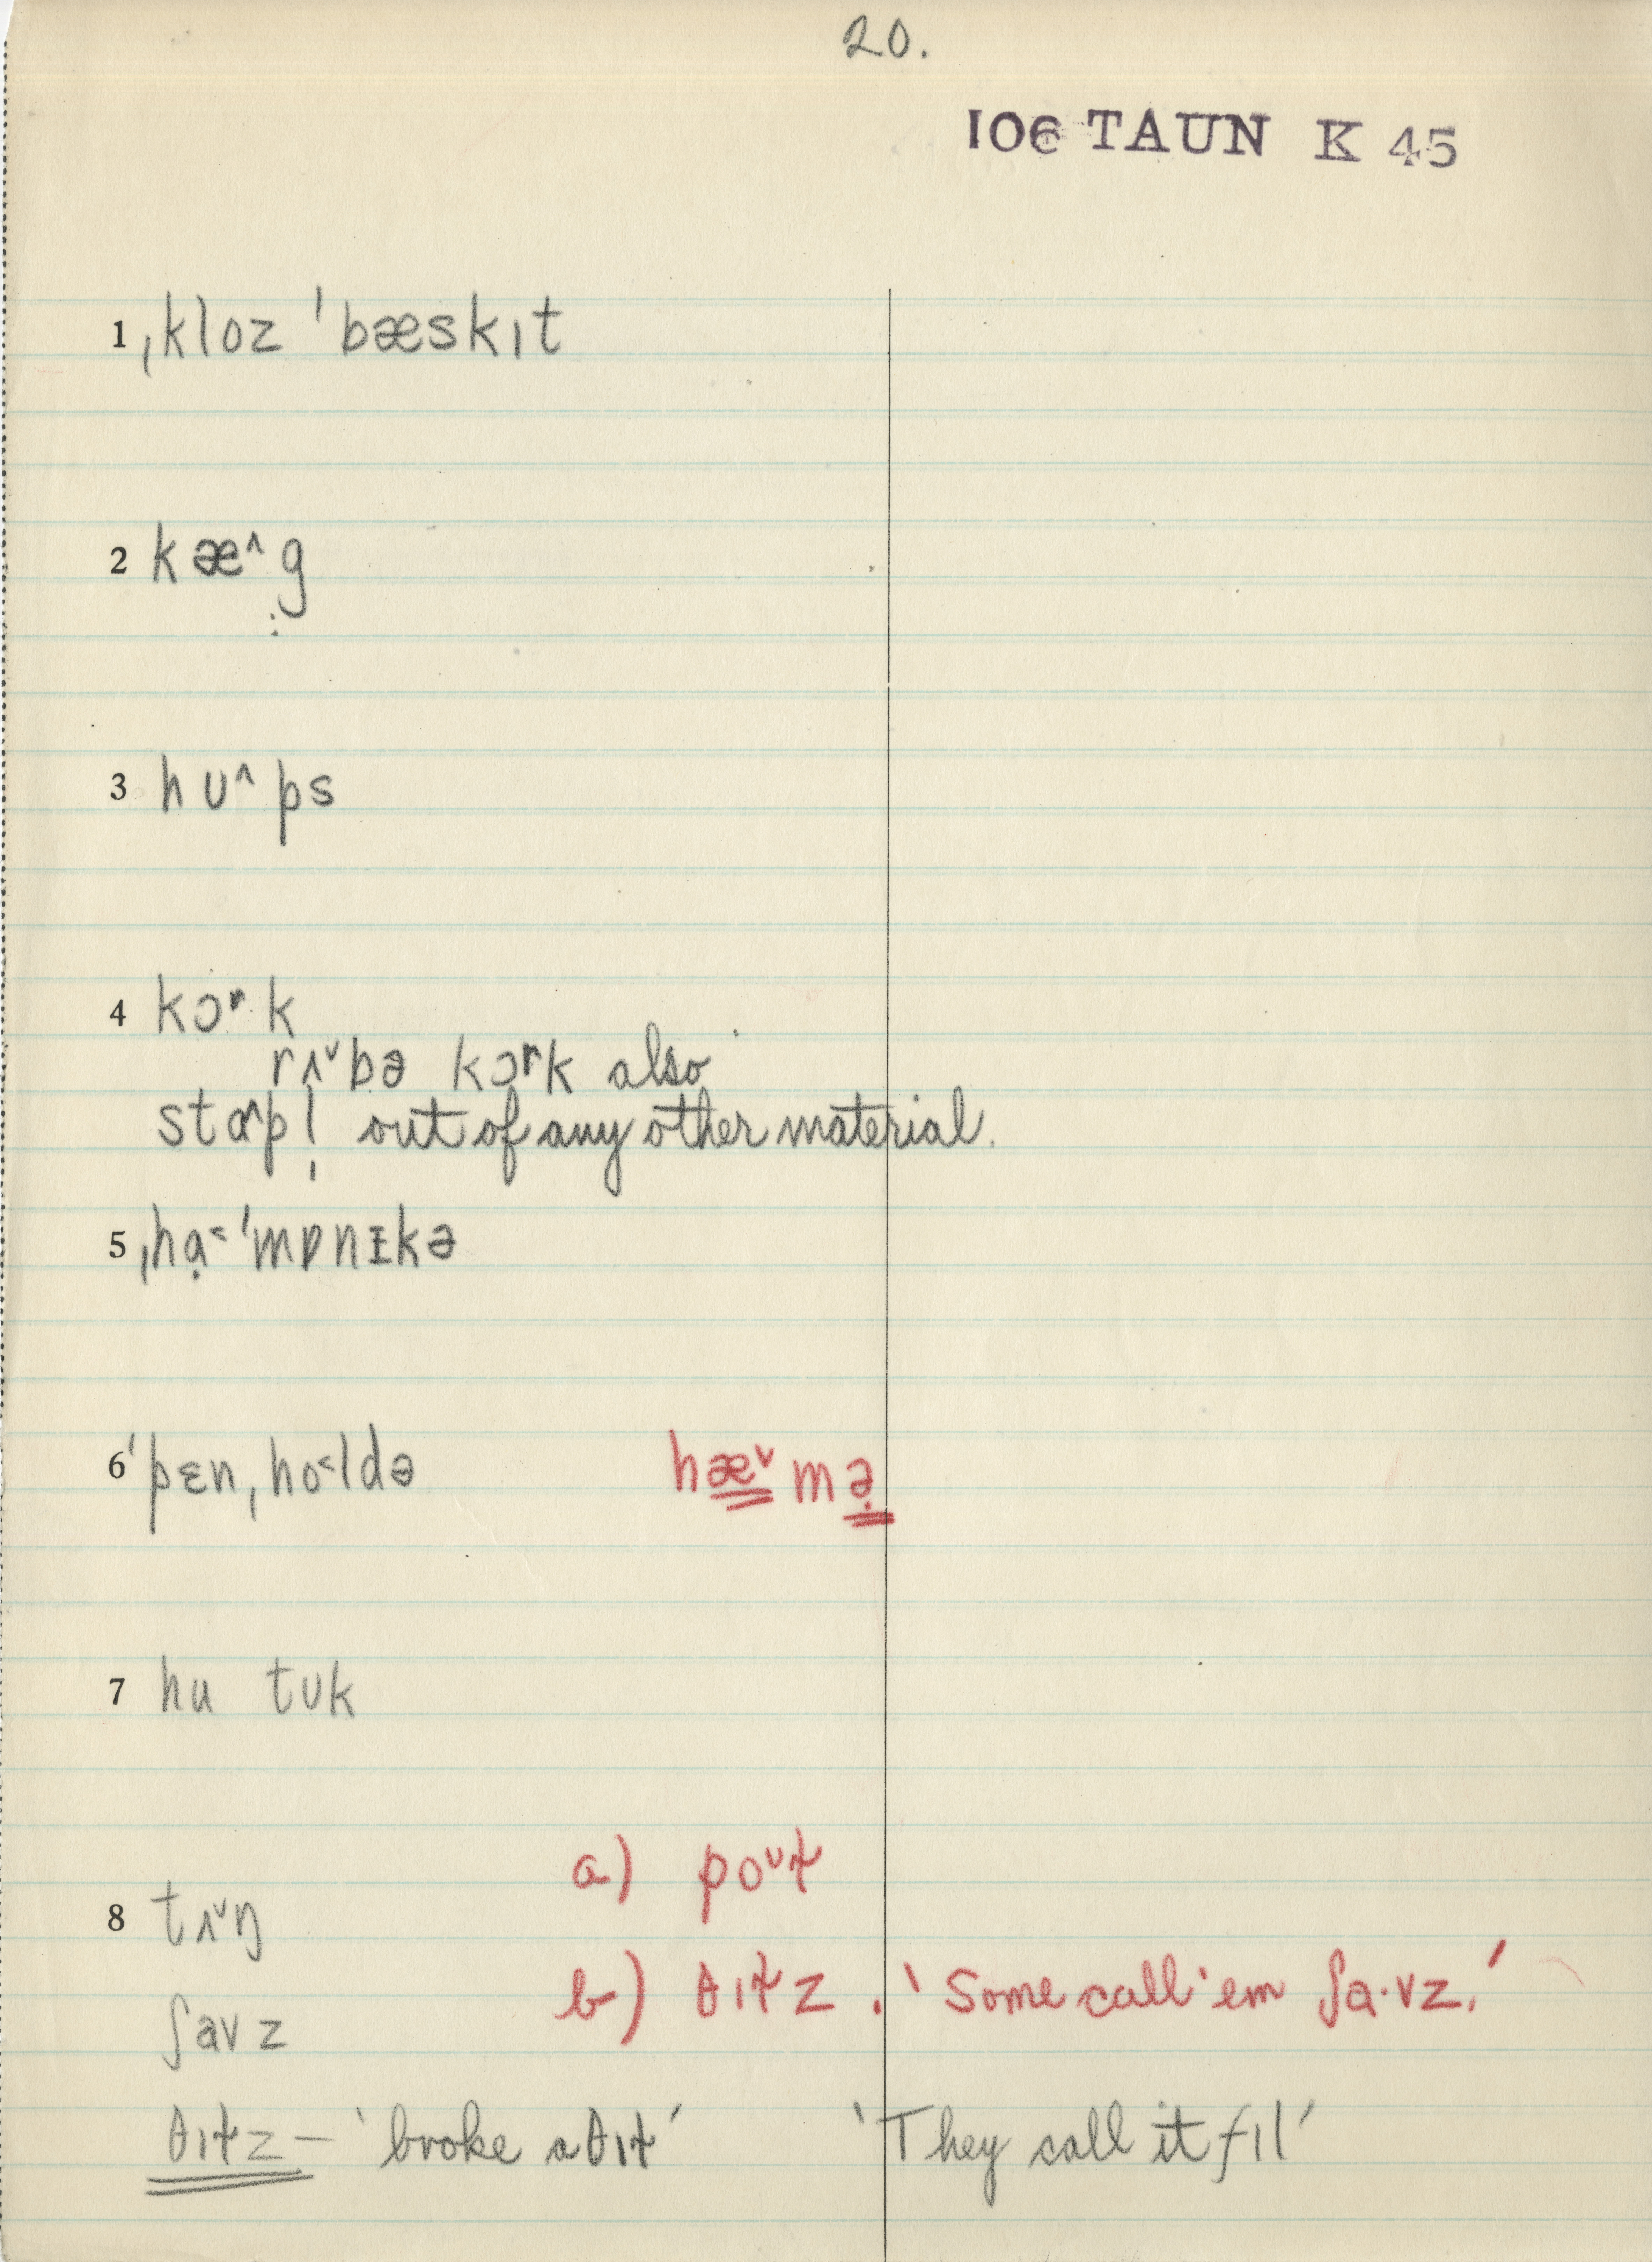 20.
106 TAUN K 45
1 ˌkloz ˈbæskɪt
2 kæ^g̣
3 hʊ^ps
4 kɔʳk
rʌˇbə kɔʳk also
stɑ^pl̩ out of any other material.
5 ˌhạ˂ˈmɒnɪkə
6 ˈpɛn ˌho˂ldə hæˇmə̣
7 hu tʊk
8 tʌˇŋ a) poʊɫ
ʃavz b) θɪɫz. 'Some call 'em ʃa·vz.'
θɪɫz – 'broke a θɪɫ' 'They call it fɪl'